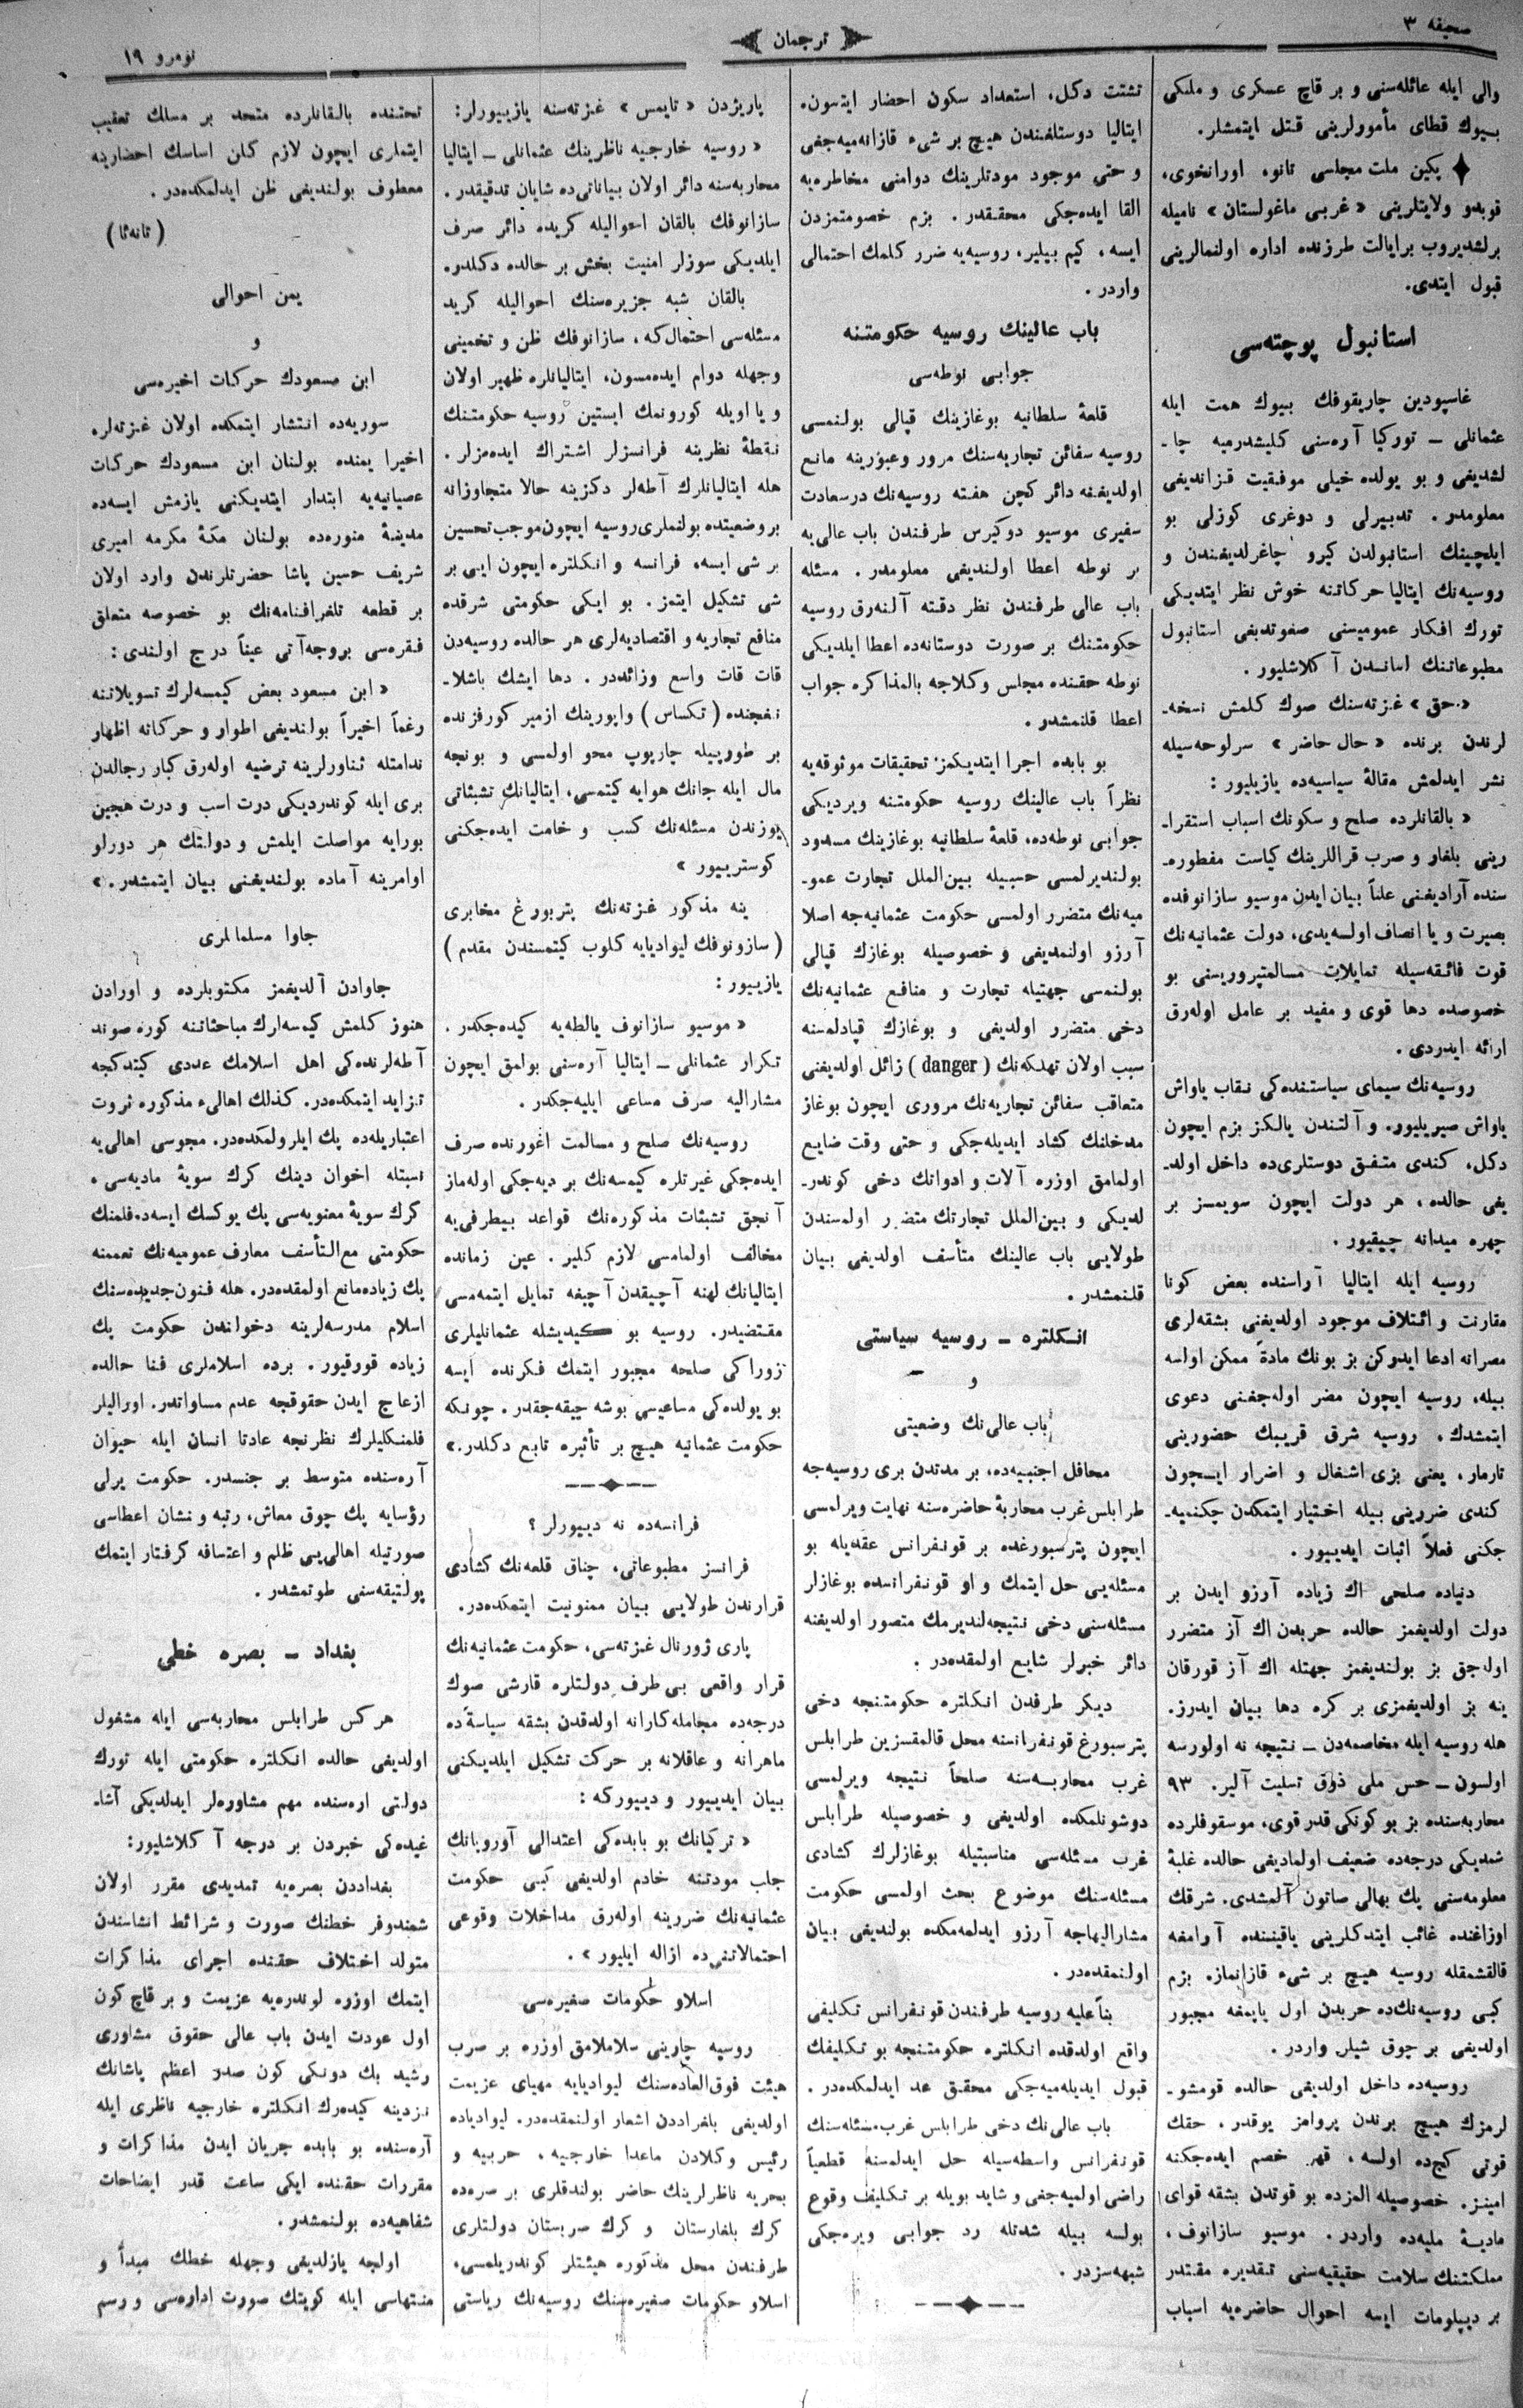 صحیفه ۳
ترجمان
نومرو ۱۹
والی ایله عائله‌سنی و بر قاچ عسكری و ملكی
بیوك قطای مأمورلرینی قتل ایتمشلر.
پكین ملت مجلسی تانو، اورانخوی،
قوبدو ولایتلرینی « غربی ماغولستان » نامیله
برلشدیروب برایالت طرزنده اداره اولنمالرینی
قبول ایتدی.
استانبول پوچته‌سی
غاسپودین چاریقوفك بیوك همت ایله
عثمانلی ــ توركیا آره‌سنی كلیشدرمیه چا‌ـ
لشدیغی و بو یولده خیلی موفقیت قزاندیغی
معلومدر. تدبیرلی و دوغری كوزلی بو
ایلچینك استانبولدن كیرو چاغرلدیغندن و
روسیه‌نك ایتالیا حركاتنه خوش نظر ایتدیكی
تورك افكار عمومیسنی صغوتدیغی استانبول
مطبوعاتنك لسانندن آ كلاشلیور.
«حق» غزته‌سنك صوك كلمش نسخه‌ـ
لرندن برنده « حال حاضر » سرلوحه‌سیله
نشر ایدلمش مقالهٔ سیاسیه‌ده یازیلیور :
« بالقانلرده صلح و سكونك اسباب استقرا‌ـ
رینی بلغار و صرب قراللرینك كیاست مفطوره‌ـ
سنده آرادیغنی علناً بیان ایدن موسیو سازانوفده
بصیرت و یا انصاف اولسه‌یدی، دولت عثمانیه‌نك
قوت فائقه‌سیله تمایلات مسالمتپروریسنی بو
خصوصده دها قوی و مفید بر عامل اوله‌رق
ارائه ایدردی.
روسیه‌نك سیمای سیاستنده‌كی نقاب یاواش
یاواش صیریلیور. و آلتندن یالكز بزم ایچون
دكل، كندی متفق دوستلری‌ده داخل اولد‌ـ
یغی حالده، هر دولت ایچون سویمسز بر
چهره میدانه چیقیور.
روسیه ایله ایتالیا آراسنده بعض كونا
مقارنت و ائتلاف موجود اولدیغنی بشقه‌لری
مصرانه ادعا ایدركن بز بونك مادةً ممكن اولسه
بیله، روسیه ایچون مضر اوله‌جغنی دعوی
ایتمشدك. روسیه شرق قریبك حضورینی
تارمار، یعنی بزی اشغال و اضرار ایچون
كندی ضررینی بیله اختیار ایتمكدن چكنمیه‌ـ
جكنی فعلاً اثبات ایدییور.
دنیاده صلحی اك زیاده آرزو ایدن بر
دولت اولدیغمز حالده حربدن اك آز متضرر
اوله‌جق بز بولندیغمز جهتله اك آز قورقان
ینه بز اولدیغمزی بر كره دها بیان ایدرز.
هله روسیه ایله مخاصمه‌دن ــ نتیجه نه اولورسه
اولسون ــ حس ملی ذوق تسلیت آلیر. ۹۳
محاربه‌سنده بز بو كونكی قدر قوی، موسقوفلرده
شمدیكی درجه‌ده ضعیف اولمادیغی حالده غلبهٔ
معلومه‌سنی پك بهالی صاتون آلمشدی. شرقك
اوزاغنده غائب ایتدكلرینی یاقیننده آرامغه
قالقشمقله روسیه هیچ بر شیء قازانماز. بزم
كبی روسیه‌نك‌ده حربدن اول یاپمغه مجبور
اولدیغی بر چوق شیلر واردر.
روسیه‌ده داخل اولدیغی حالده قومشو‌ـ
لرمزك هیچ برندن پروامز یوقدر. حقك
قوتی كچ‌ده اولسه، قهر خصم ایده‌جكنه
امینز. خصوصیله المزده بو قوتدن بشقه قوای
مادیهٔ ملیه‌ده واردر. موسیو سازانوف،
مملكتنك سلامت حقیقیه‌سنی تقدیره مقتدر
بر دیپلومات ایسه احوال حاضره‌یه اسباب
تشتت دكل، استعداد سكون احضار ایتسون.
ایتالیا دوستلغندن هیچ بر شیء قازانه‌میه‌جغی
و حتی موجود مودتلرینك دوامنی مخاطره‌یه
القا ایده‌جكی محققدر. بزم خصومتمزدن
ایسه، كیم بیلیر، روسیه‌یه ضرر كلمك احتمالی
واردر.
باب عالینك روسیه حكومتنه
جوابی نوطه‌سی
قلعهٔ سلطانیه بوغازینك قپالی بولنمسی
روسیه سفائن تجاریه‌سنك مرور وعبورینه مانع
اولدیغنه دائر كچن هفته روسیه‌نك درسعادت
سفیری موسیو دوكیرس طرفندن باب عالی‌یه
بر نوطه اعطا اولندیغی معلومدر. مسئله
باب عالی طرفندن نظر دقته آلنه‌رق روسیه
حكومتنك بر صورت دوستانه‌ده اعطا ایلدیكی
نوطه حقنده مجلس وكلاجه بالمذاكره جواب
اعطا قلنمشدر.
بو بابده اجرا ایتدیكمز تحقیقات موثوقه‌یه
نظراً باب عالینك روسیه حكومتنه ویردیكی
جوابی نوطه‌ده، قلعهٔ سلطانیه بوغازینك مسدود
بولندیرلمسی حسبیله بین‌الملل تجارت عمو‌ـ
میه‌نك متضرر اولمسی حكومت عثمانیه‌جه اصلا
آرزو اولنمدیغی و خصوصیله بوغازك قپالی
بولنمسی جهتیله تجارت و منافع عثمانیه‌نك
دخی متضرر اولدیغی و بوغازك قپادلمسنه
سبب اولان تهلكه‌نك ( danger ) زائل اولدیغنی
متعاقب سفائن تجاریه‌نك مروری ایچون بوغاز
مدخلنك كشاد ایدیله‌جكی و حتی وقت ضایع
اولمامق اوزره آلات و ادواتك دخی كوندر‌ـ
لدیكی و بین‌الملل تجارتك متضرر اولمسندن
طولایی باب عالینك متأسف اولدیغی بیان
قلنمشدر.
انكلتره ــ روسیه سیاستی
و
باب عالی‌نك وضعیتی
محافل اجنبیه‌ده، بر مدتدن بری روسیه‌جه
طرابلس غرب محاربهٔ حاضره‌سنه نهایت ویرلمسی
ایچون پترسبورغده بر قونفرانس عقدیله بو
مسئله‌یی حل ایتمك و او قونفرانسده بوغازلر
مسئله‌سنی دخی نتیجه‌لندیرمك متصور اولدیغنه
دائر خبرلر شایع اولمقده‌در.
دیكر طرفدن انكلتره حكومتنجه دخی
پترسبورغ قونفرانسنه محل قالمقسزین طرابلس
غرب محاربه‌سنه صلحاً نتیجه ویرلمسی
دوشونلمكده اولدیغی و خصوصیله طرابلس
غرب مسئله‌سی مناسبتیله بوغازلرك كشادی
مسئله‌سنك موضوع بحث اولمسی حكومت
مشارالیهاجه آرزو ایدلمه‌مكده بولندیغی بیان
اولنمقده‌در.
بناً علیه روسیه طرفندن قونفرانس تكلیفی
واقع اولدقده انكلتره حكومتنجه بو تكلیفك
قبول ایدیله‌میه‌جكی محقق عد ایدلمكده‌در.
باب عالی‌نك دخی طرابلس غرب مسئله‌سنك
قونفرانس واسطه‌سیله حل ایدلمسنه قطعیاً
راضی اولمیه‌جغی و شاید بویله بر تكلیف وقوع
بولسه بیله شدتله رد جوابی ویره‌جكی
شبهه‌سزدر.
پاریزدن « تایمس » غزته‌سنه یازییورلر:
« روسیه خارجیه ناظرینك عثمانلی ــ ایتالیا
محاربه‌سنه دائر اولان بیاناتی‌ده شایان تدقیقدر.
سازانوفك بالقان احوالیله كریده دائر صرف
ایلدیكی سوزلر امنیت بخش بر حالده دكلدر.
بالقان شبه جزیره‌سنك احوالیله كرید
مسئله‌سی احتمال‌كه، سازانوفك ظن و تخمینی
وجهله دوام ایده‌مسون، ایتالیانلره ظهیر اولان
و یا اویله كورونمك ایستین روسیه حكومتنك
نقطهٔ نظرینه فرانسزلر اشتراك ایده‌مزلر.
هله ایتالیانلرك آطه‌لر دكزینه حالا متجاوزانه
بروضعیتده بولنملری روسیه ایچون موجب تحسین
بر شی ایسه، فرانسه و انكلتره ایچون ایی بر
شی تشكیل ایتمز. بو ایكی حكومتی شرقده
منافع تجاریه و اقتصادیه‌لری هر حالده روسیه‌دن
قات قات واسع وزائددر. دها ایشك باشلا‌ـ
نغجنده ( تكساس ) واپورینك ازمیر كورفزنده
بر طورپیله چارپوب محو اولمسی و بونجه
مال ایله جانك هوایه كیتمسی، ایتالیانك تشبثاتی
یوزندن مسئله‌نك كسب و خامت ایده‌جكنی
كوستریبور »
ینه مذكور غزته‌نك پتربورغ مخابری
( سازونوفك لیوادیایه كلوب كیتمسندن مقدم )
یازییور :
« موسیو سازانوف یالطه‌یه كیده‌جكدر.
تكرار عثمانلی ــ ایتالیا آره‌سنی بولمق ایچون
مشارالیه صرف مساعی ایلیه‌جكدر.
روسیه‌نك صلح و مسالمت اغورنده صرف
ایده‌جكی غیرتلره كیمسه‌نك بر دیه‌جكی اوله‌ماز
آنجق تشبثات مذكوره‌نك قواعد بیطرفی‌یه
مخالف اولمامسی لازم كلیر. عین زمانده
ایتالیانك لهنه آچیقدن آچیغه تمایل ایتمه‌مسی
مقتضیدر. روسیه بو كیدیشله عثمانلیلری
زوراكی صلحه مجبور ایتمك فكرنده ایسه
بو یولده‌كی مساعیسی بوشه چیقه‌جقدر. چونكه
حكومت عثمانیه هیچ بر تأثیره تابع دكلدر.»
فرانسه‌ده نه دییورلر ؟
فرانسز مطبوعاتی، چناق قلعه‌نك كشادی
قرارندن طولایی بیان ممنونیت ایتمكده‌در.
پاری ژورنال غزته‌سی، حكومت عثمانیه‌نك
قرار واقعی بی طرف دولتلره قارشی صوك
درجه‌ده مجامله‌كارانه اولدقدن بشقه سیاسةً ده
ماهرانه و عاقلانه بر حركت تشكیل ایلدیكنی
بیان ایدییور و دییوركه :
« تركیانك بو بابده‌كی اعتدالی آوروپانك
جلب مودتنه خادم اولدیغی كبی حكومت
عثمانیه‌نك ضررینه اوله‌رق مداخلات وقوعی
احتمالاتنی‌ده ازاله ایلیور ».
اسلاو حكومات صغیره‌سی
روسیه چارینی سلاملامق اوزره بر صرب
هیئت فوق‌العاده‌سنك لیوادیایه مهیای عزیمت
اولدیغی بلغراددن اشعار اولنمقده‌در. لیوادیاده
رئیس وكلادن ماعدا خارجیه، حربیه و
بحریه ناظرلرینك حاضر بولندقلری بر صره‌ده
كرك بلغارستان و كرك صربستان دولتلری
طرفندن محل مذكوره هیئتلر كوندریلمسی،
اسلاو حكومات صغیره‌سنك روسیه‌نك ریاستی
تحتنده بالقانلرده متحد بر مسلك تعقیب
ایتملری ایچون لازم كلن اساسك احضارینه
معطوف بولندیغی ظن ایدلمكده‌در.
یمن احوالی
و
ابن مسعودك حركات اخیره‌سی
سوریه‌ده انتشار ایتمكده اولان غزته‌لر،
اخیرا یمنده بولنان ابن مسعودك حركات
عصیانیه‌یه ابتدار ایتدیكنی یازمش ایسه‌ده
مدینهٔ منوره‌ده بولنان مكهٔ مكرمه امیری
شریف حسین پاشا حضرتلرندن وارد اولان
بر قطعه تلغرافنامه‌نك بو خصوصه متعلق
فقره‌سی بروجه‌آتی عیناً درج اولندی :
« ابن مسعود بعض كیمسه‌لرك تسویلاتنه
رغماً اخیراً بولندیغی اطوار و حركاته اظهار
ندامتله ثناورلرینه ترضیه اوله‌رق كبار رجالدن
بری ایله كوندردیكی درت اسب و درت هجین
بورایه مواصلت ایلمش و دولتك هر دورلو
اوامرینه آماده بولندیغنی بیان ایتمشدر.»
جاوا مسلمانلری
جاوادن آلدیغمز مكتوبلرده و اورادن
هنوز كلمش كیمسه‌لرك مباحثاتنه كوره صوند
آطه‌لرنده‌كی اهل اسلامك عددی كیتدكجه
تزاید ایتمكده‌در. كذلك اهالیء مذكوره ثروت
اعتباریله‌ده پك ایلرولمكده‌در. مجوسی اهالی‌یه
نسبتله اخوان دینك كرك سویهٔ مادیه‌سی،
كرك سویهٔ معنویه‌سی پك یوكسك ایسه‌ده، فلمنك
حكومتی مع‌التأسف معارف عمومیه‌نك تعممنه
پك زیاده مانع اولمقده‌در. هله فنون جدیده‌سنك
اسلام مدرسه‌لرینه دخولندن حكومت پك
زیاده قورقیور. برده اسلاملری فنا حالده
ازعاج ایدن حقوقجه عدم مساواتدر. اورالیلر
فلمنكلیلرك نظرنجه عادتا انسان ایله حیوان
آره‌سنده متوسط بر جنسدر. حكومت یرلی
رؤسایه پك چوق معاش، رتبه و نشان اعطاسی
صورتیله اهالی‌یی ظلم و اعتسافه كرفتار ایتمك
پولتیقه‌سنی طوتمشدر.
بغداد ــ بصره خطی
هركس طرابلس محاربه‌سی ایله مشغول
اولدیغی حالده انكلتره حكومتی ایله تورك
دولتی اره‌سنده مهم مشاوره‌لر ایدلدیكی آشا‌ـ
غیده‌كی خبردن بر درجه آ كلاشلیور:
بغداددن بصره‌یه تمدیدی مقرر اولان
شمندوفر خطنك صورت و شرائط انشاسندن
متولد اختلاف حقنده اجرای مذاكرات
ایتمك اوزره لوندره‌یه عزیمت و بر قاچ كون
اول عودت ایدن باب عالی حقوق مشاوری
رشید بك دونكی كون صدر اعظم پاشانك
نزدینه كیده‌رك انكلتره خارجیه ناظری ایله
آره‌سنده بو بابده جریان ایدن مذاكرات و
مقررات حقنده ایكی ساعت قدر ایضاحات
شفاهیه‌ده بولنمشدر.
اولجه یازلدیغی وجهله خطك مبدأ و
منتهاسی ایله كویتك صورت اداره‌سی و رسم